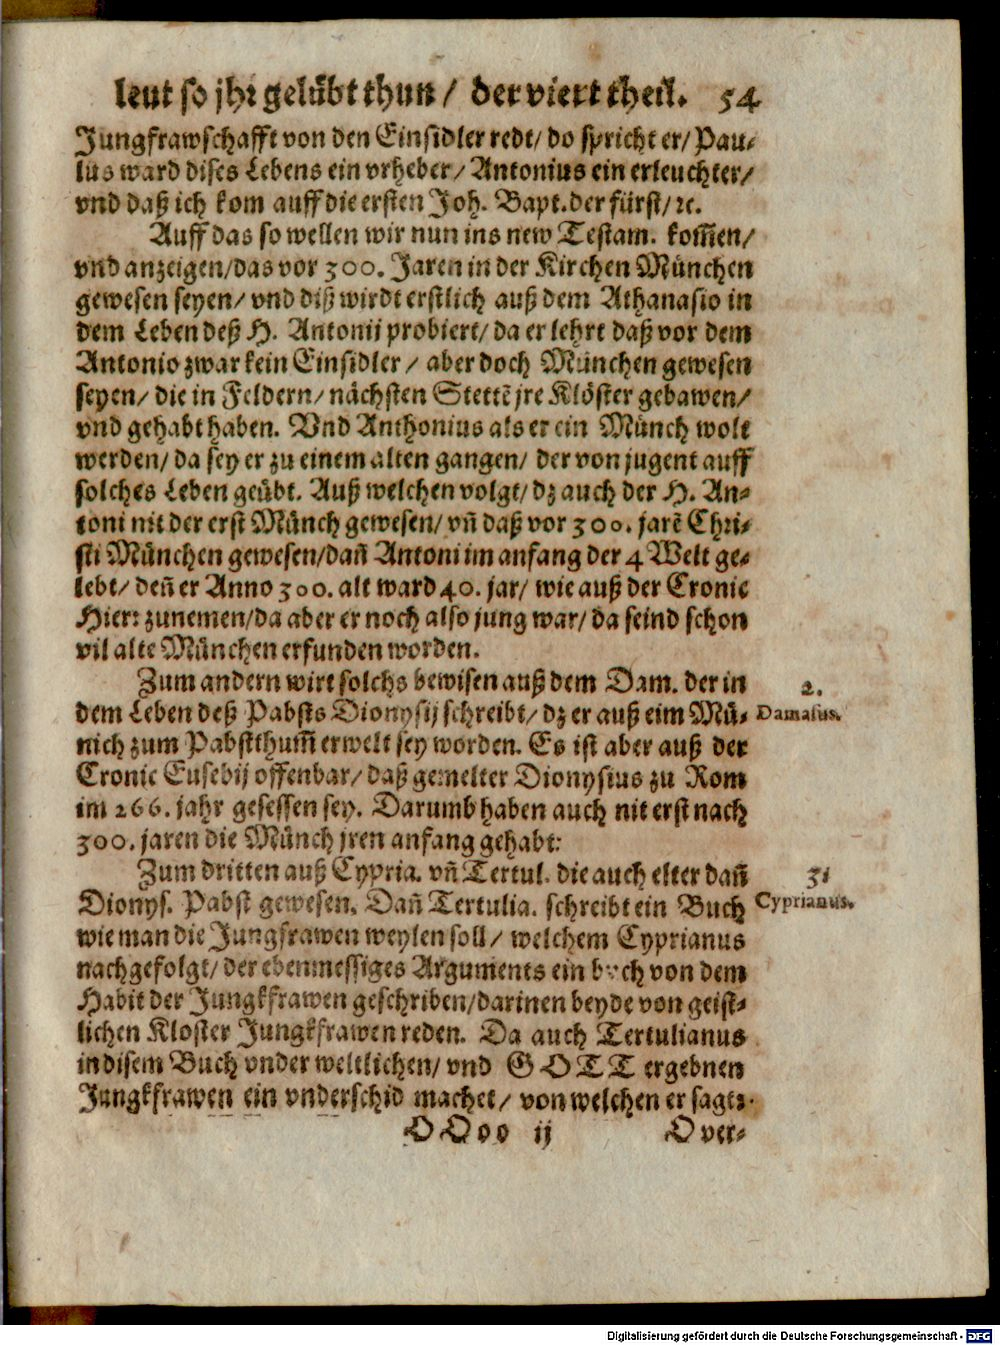 leut so jhr gelübt thun / der viert theil. 54
Jungfrawschafft von den Einsidler redt / do spricht er / Pau-
lus ward dises Lebens ein vrheber / Antonius ein erleuchter /
vnd daß ich kom auff die ersten Joh. Bapt. der fürst / ꝛc.
Auff das so wellen wir nun ins new Testam. kom̃en /
vnd anzeigen / das vor 300. Jaren in der Kirchen München
gewesen seyen / vnd diß wirdt erstlich auß dem Athanasio in
dem Leben deß H. Antonij probiert / da er lehrt daß vor dem
Antonio zwar kein Einsidler / aber doch München gewesen
seyen / die in Feldern / nächsten Stettẽ jre Klöster gebawen /
vnd gehabt haben. Vnd Anthonius als er ein Münch wolt
werden / da sey er zu einem alten gangen / der von jugent auff
solches Leben geübt. Auß welchen volgt / dz auch der H. An-
toni nit der erst Münch gewesen / vñ daß vor 300. jarẽ Chri-
sti München gewesen / dañ Antoni im anfang der 4 Welt ge-
lebt / deñ er Anno 300. alt ward 40. jar / wie auß der Cronic
Hier: zunemen / da aber er noch also jung war / da seind schon
vil alte München erfunden worden.
Zum andern wirt solchs bewisen auß dem Dam. der in
2.
dem Leben deß Pabsts Dionysij schreibt / dz er auß eim Mü-
Damasus.
nich zum Pabstthum̃ erwelt sey worden. Es ist aber auß der
Cronic Eusebij offenbar / daß gemelter Dionysius zu Rom
im 266. jahr gesessen sey. Darumb haben auch nit erst nach
300. jaren die Münch jren anfang gehabt:
Zum dritten auß Cypria. vñ Tertul. die auch elter dañ
3.
Dionys. Pabst gewesen. Dañ Tertulia. schreibt ein Buch
Cyprianus.
wie man die Jungfrawen weylen soll / welchem Cyprianus
nachgefolgt / der ebenmessiges Arguments ein buch von dem
Habit der Jungkfrawen geschriben / darinen beyde von geist-
lichen Kloster Jungkfrawen reden. Da auch Tertulianus
in disem Buch vnder weltlichen / vnd GOTT ergebnen
Jungkfrawen ein vnderschid machet / von welchen er sagt:
OOoo ij Over-
Digitalisierung gefördert durch die Deutsche Forschungsgemeinschaft - DFG